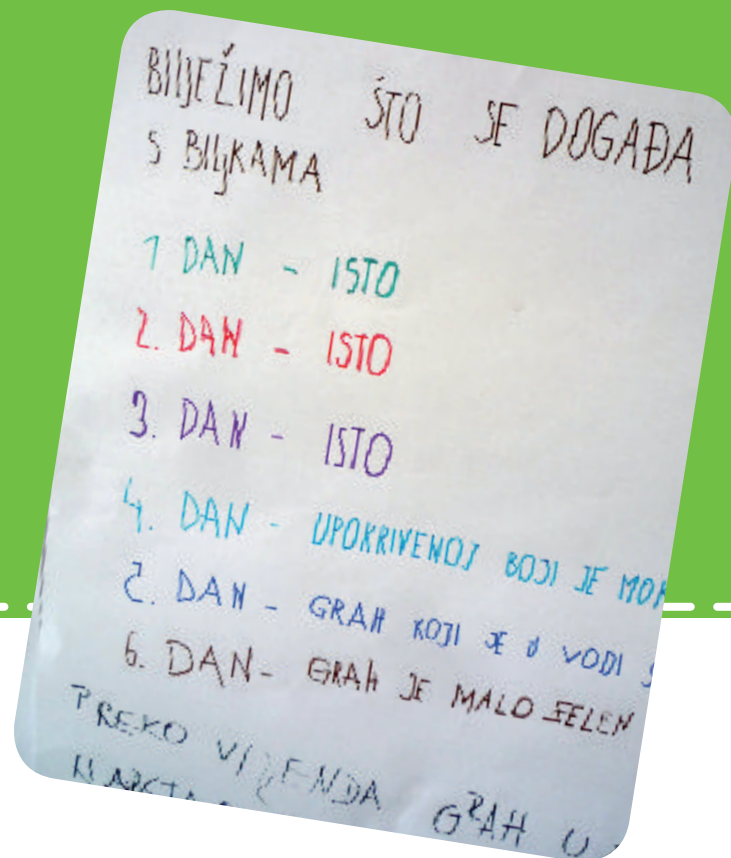 BILJEŽIMO ŠTO SE DOGAĐA
S BILJKAMA
1 DAN - ISTO
2. DAN - ISTO
3. DAN - ISTO
4. DAN - UPOKRIVENOJ BOJI JE
5. DAN - GRAH KOJI JE U VODI
6. DAN - GRAH JE MALO ZELEN
PREKO VIKENDA GRAH U